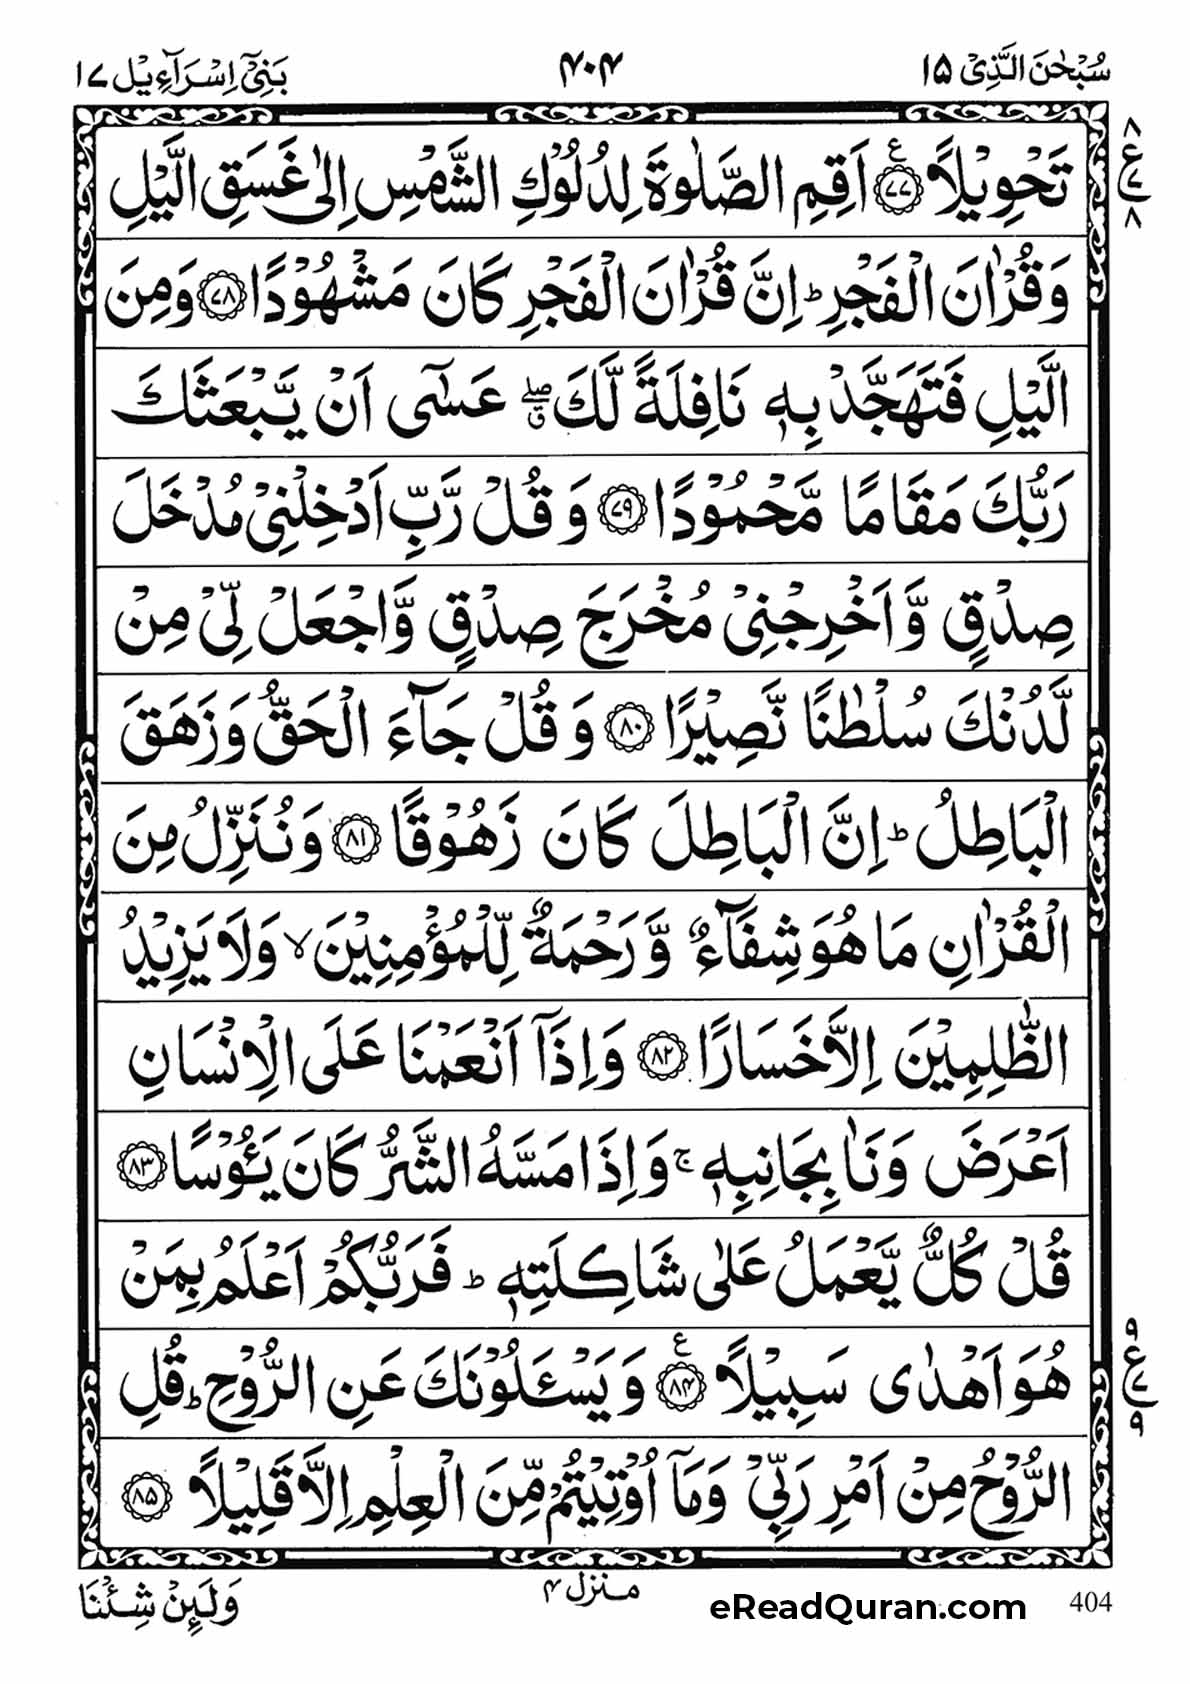 سُبۡحٰنَ الَّذِیۡ ۱۵
۴۰۴
بَنِیۡۤ اِسۡرَآءِیۡل ۱۷
۸
ع
۷
۸
تَحۡوِیۡلًا ﴿۷۷﴾ ع اَقِمِ الصَّلٰوةَ لِدُلُوۡكِ الشَّمۡسِ اِلٰی غَسَقِ الَّیۡلِ
وَ قُرۡاٰنَ الۡفَجۡرِ ؕ اِنَّ قُرۡاٰنَ الۡفَجۡرِ كَانَ مَشۡهُوۡدًا ﴿۷۸﴾ وَ مِنَ
الَّیۡلِ فَتَهَجَّدۡ بِهٖ نَافِلَةً لَّكَ ۖ ق عَسٰۤی اَنۡ یَّبۡعَثَكَ
رَبُّكَ مَقَامًا مَّحۡمُوۡدًا ﴿۷۹﴾ وَ قُلۡ رَّبِّ اَدۡخِلۡنِیۡ مُدۡخَلَ
صِدۡقٍ وَّ اَخۡرِجۡنِیۡ مُخۡرَجَ صِدۡقٍ وَّ اجۡعَلۡ لِّیۡ مِنۡ
لَّدُنۡكَ سُلۡطٰنًا نَّصِیۡرًا ﴿۸۰﴾ وَ قُلۡ جَآءَ الۡحَقُّ وَ زَهَقَ
الۡبَاطِلُ ؕ اِنَّ الۡبَاطِلَ كَانَ زَهُوۡقًا ﴿۸۱﴾ وَ نُنَزِّلُ مِنَ
الۡقُرۡاٰنِ مَا هُوَ شِفَآءٌ وَّ رَحۡمَةٌ لِّلۡمُؤۡمِنِیۡنَ ۙ وَ لَا یَزِیۡدُ
الظّٰلِمِیۡنَ اِلَّا خَسَارًا ﴿۸۲﴾ وَ اِذَاۤ اَنۡعَمۡنَا عَلَی الۡاِنۡسَانِ
اَعۡرَضَ وَ نَاٰ بِجَانِبِهٖ ۚ وَ اِذَا مَسَّهُ الشَّرُّ كَانَ یَـُٔوۡسًا ﴿۸۳﴾
قُلۡ كُلٌّ یَّعۡمَلُ عَلٰی شَاكِلَتِهٖ ؕ فَرَبُّكُمۡ اَعۡلَمُ بِمَنۡ
هُوَ اَهۡدٰی سَبِیۡلًا ﴿۸۴﴾ ع وَ یَسۡـَٔلُوۡنَكَ عَنِ الرُّوۡحِ ؕ قُلِ
۹
ع
۷
۹
الرُّوۡحُ مِنۡ اَمۡرِ رَبِّیۡ وَ مَاۤ اُوۡتِیۡتُمۡ مِّنَ الۡعِلۡمِ اِلَّا قَلِیۡلًا ﴿۸۵﴾
منزل ۴
وَلَئِنۡ شِئۡنَا
eReadQuran.com
404